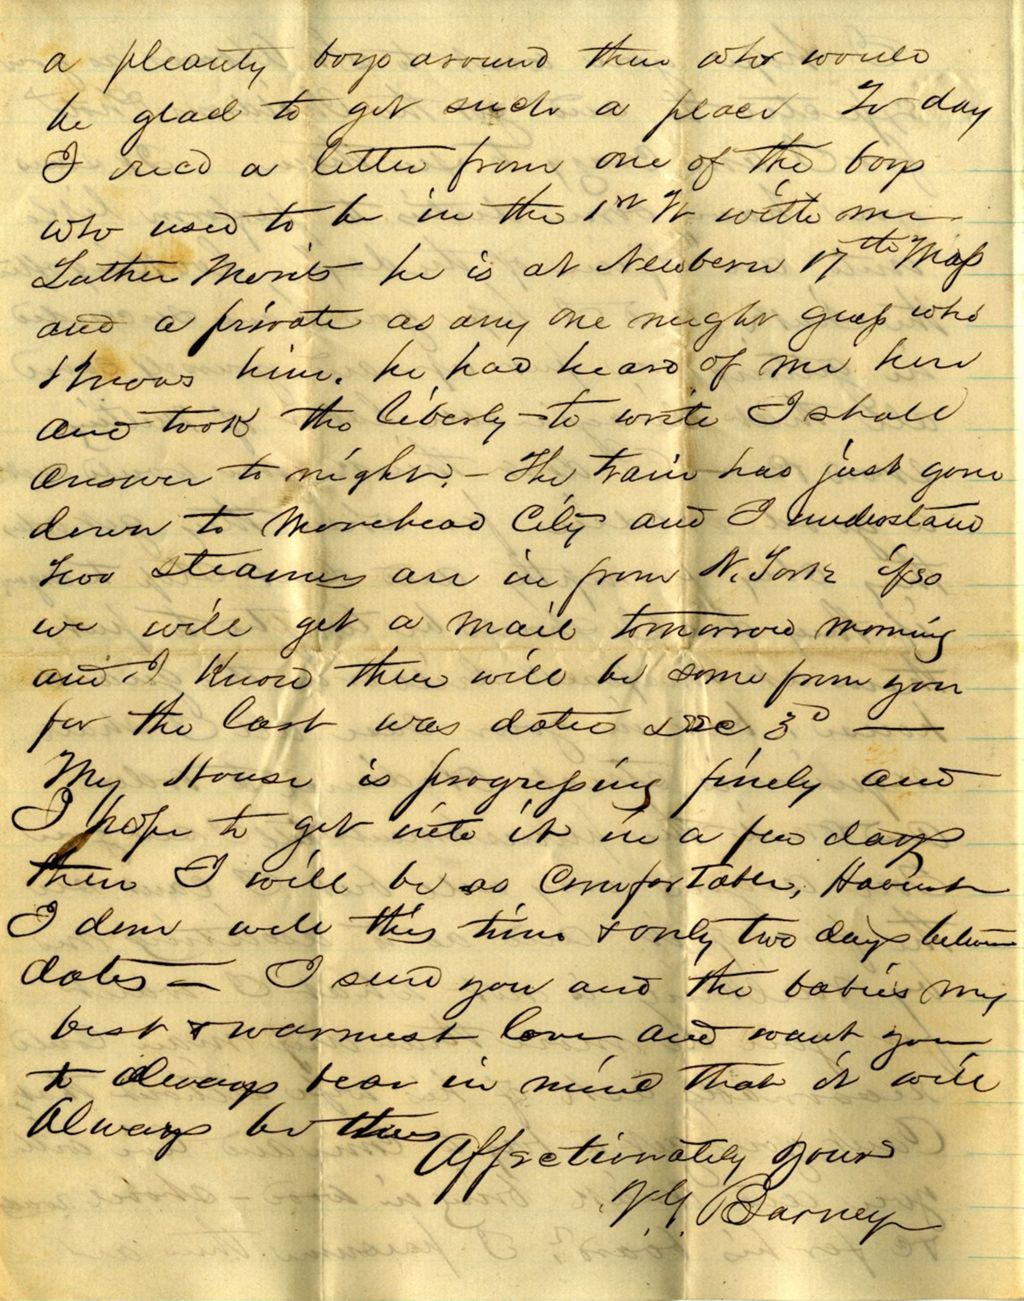 a pleanty boys around there who would
be glad to get such a place To day
I recd a letter from one of the boys
who used to be in the 1st Vt with me
Luther Morris he is at Newbern 17th Mass
and a private as any one might guess who
Knows him. he had heard of me here
and took the liberty to write I shall
answer to night. – The train has just gone
down to Morehead City and I understand
two steamers are in from N. York if so
we will get a mail tomorrow morning
and I Know there will be some from you
for the last was dated Dec 3d —
My House is progressing finely and
I hope to get into it in a few days
then I will be so Comfortable, Havent
I done well this time & only two days between
dates — I send you and the babies my
best & warmest love and want you
to always bear in mind that it will
Always be thus
Affectionately Yours
V G Barney